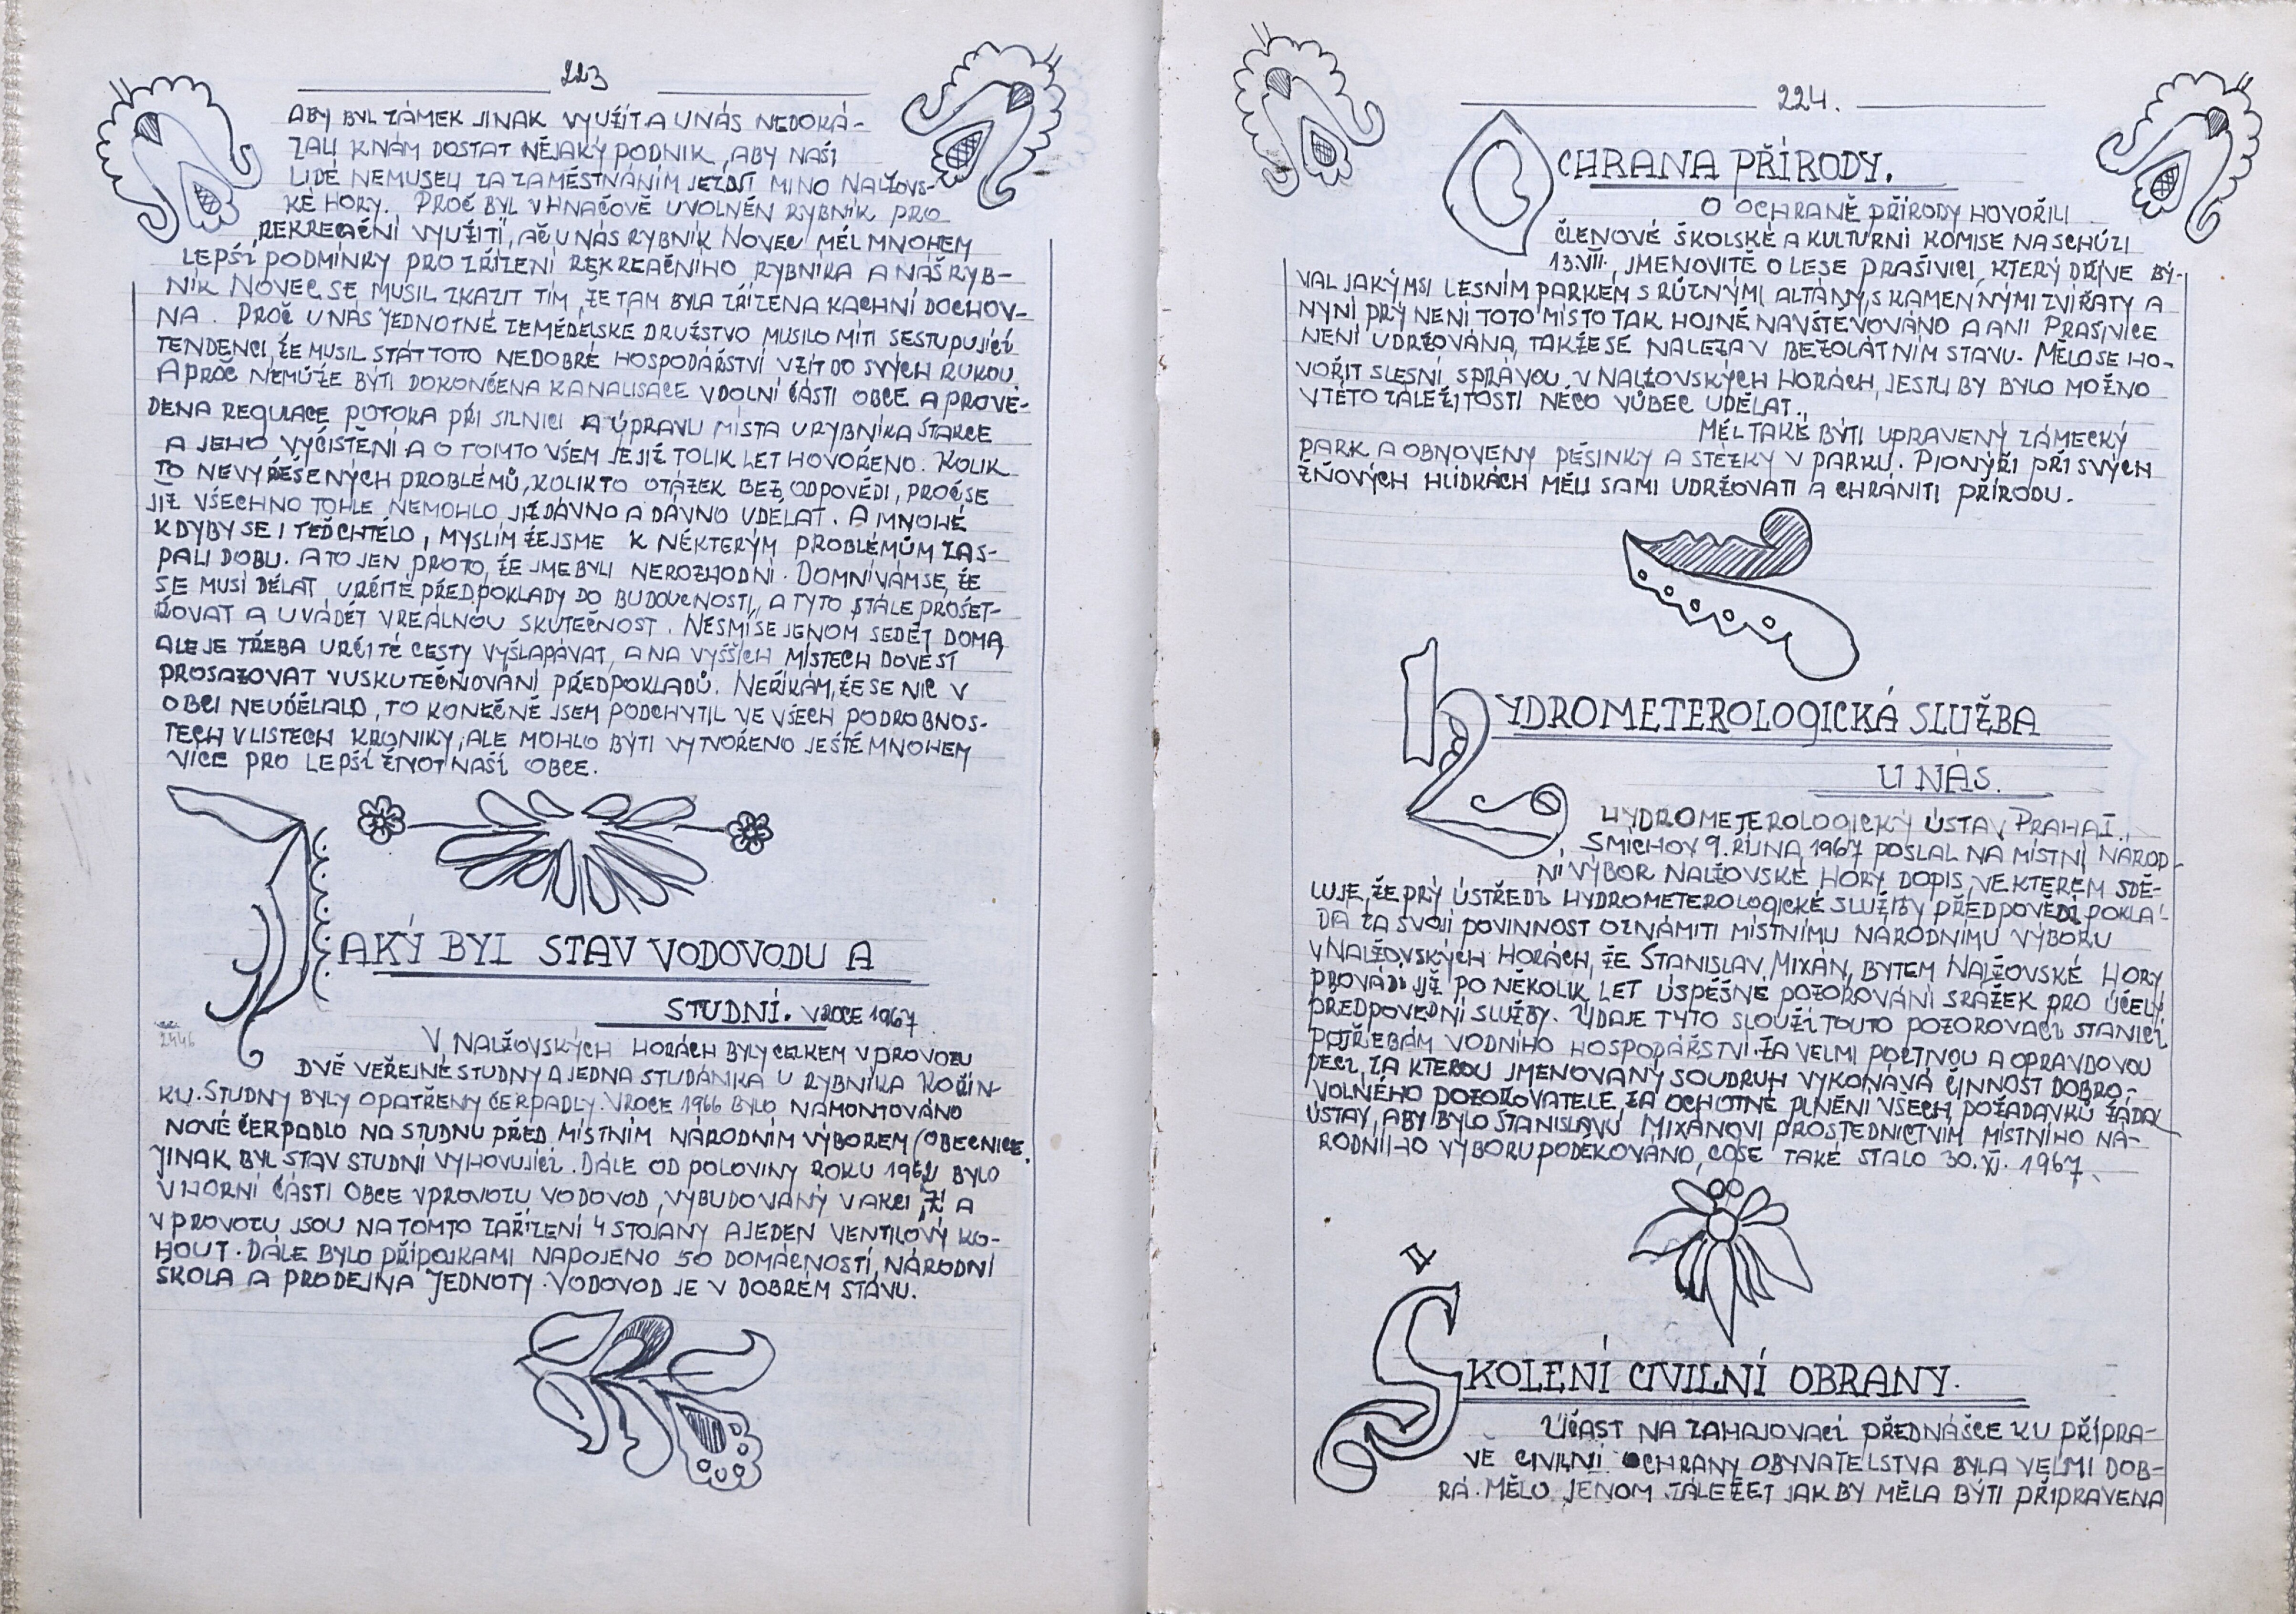 223
ABY BYL ZÁMEK JINAK VYUŽÍT A U NÁS NEDOKÁ-
ZALI K NÁM DOSTAT NĚJAKÝ PODNIK, ABY NAŠI
LIDÉ NEMUSELI ZA ZAMĚSTNÁNÍM JEZDIT MIMO NALŽOVS-
KÉ HORY. PROČ BYL V HNAČOVĚ UVOLNĚN RYBNÍK PRO
REKREAČNÍ VYUŽITÍ, AČ U NÁS RYBNÍK NOVEC MĚL MNOHEM
LEPŠÍ PODMÍNKY PRO ZŘÍZENÍ REKREAČNÍHO RYBNÍKA A NÁŠ RYB-
NÍK NOVEC SE MUSIL ZKAZIT TÍM, ŽE TAM BYLA ZŘÍZENA KACHNÍ DOCHOV-
NA. PROČ U NÁS JEDNOTNÉ ZEMĚDĚLSKÉ DRUŽSTVO MUSILO MÍTI SESTUPUJÍCÍ
TENDENCI, ŽE MUSIL STÁT TOTO NEDOBRÉ HOSPODÁŘSTVÍ VZÍT DO SVÝCH RUKOU.
A PROČ NEMŮŽE BÝTI DOKONČENA KANALISACE V DOLNÍ ČÁSTI OBCE A PROVE-
DENA REGULACE POTOKA PŘI SILNICI A ÚPRAVU MÍSTA U RYBNÍKA ŠTAKCE
A JEHO VYČIŠTĚNÍ A O TOMTO VŠEM JE JIŽ TOLIK LET HOVOŘENO. KOLIK
TO NEVYŘEŠENÝCH PROBLÉMŮ, KOLIK TO OTÁZEK BEZ ODPOVĚDI, PROČ SE
JIŽ VŠECHNO TOHLE NEMOHLO JIŽ DÁVNO A DÁVNO UDĚLAT. A MNOHÉ
KDYBY SE I TEĎ CHTĚLO, MYSLÍM ŽE JSME K NĚKTERÝM PROBLÉMŮM ZAS-
PALI DOBU. A TO JEN PROTO, ŽE JME BYLI NEROZHODNÍ. DOMNÍVÁM SE, ŽE
SE MUSÍ DĚLAT URČITÉ PŘEDPOKLADY DO BUDOUCNOSTI, A TYTO STÁLE PROŠET-
ŘOVAT A UVÁDĚT V REÁLNOU SKUTEČNOST. NESMÍ SE JENOM SEDĚT DOMA,
ALE JE TŘEBA URČITÉ CESTY VYŠLAPÁVAT, A NA VYŠŠÍCH MÍSTECH DOVÉST
PROSAZOVAT V USKUTEČŇOVÁNÍ PŘEDPOKLADŮ. NEŘÍKÁM, ŽE SE NIC V
OBCI NEUDĚLALO, TO KONEČNĚ JSEM PODCHYTIL VE VŠECH PODROBNOS-
TECH V LISTECH KRONIKY, ALE MOHLO BÝTI VYTVOŘENO JEŠTĚ MNOHEM
VÍCE PRO LEPŠÍ ŽIVOT NAŠÍ OBCE.
JAKÝ BYL STAV VODOVODU A
STUDNÍ. V ROCE 1967
V NALŽOVSKÝCH HORÁCH BYLY CELKEM V PROVOZU
DVĚ VEŘEJNÉ STUDNY A JEDNA STUDÁNKA U RYBNÍKA KOŘÍN-
KU. STUDNY BYLY OPATŘENY ČERPADLY. V ROCE 1966 BYLO NAMONTOVÁNO
NOVÉ ČERPADLO NA STUDNU PŘED MÍSTNÍM NÁRODNÍM VÝBOREM (OBECNICE.
JINAK BYL STAV STUDNÍ VYHOVUJÍCÍ. DÁLE OD POLOVINY ROKU 1962 BYLO
V HORNÍ ČÁSTI OBCE V PROVOZU VODOVOD, VYBUDOVANÝ V AKCI „Z" A
V PROVOZU JSOU NA TOMTO ZAŘÍZENÍ 4 STOJANY A JEDEN VENTILOVÝ KO-
HOUT. DÁLE BYLO PŘÍPOJKAMI NAPOJENO 50 DOMÁCNOSTÍ, NÁRODNÍ
ŠKOLA A PRODEJNA JEDNOTY. VODOVOD JE V DOBRÉM STAVU.
224.
OCHRANA PŘÍRODY.
O OCHRANĚ PŘÍRODY HOVOŘILI
ČLENOVÉ ŠKOLSKÉ A KULTURNÍ KOMISE NA SCHŮZI
13.VII., JMENOVITĚ O LESE PRAŠIVICI, KTERÝ DŘÍVE BÝ-
VAL JAKÝMSI LESNÍM PARKEM S RŮZNÝMI ALTÁNY, S KAMENNÝMI ZVÍŘATY A
NYNÍ PRÝ NENÍ TOTO MÍSTO TAK HOJNĚ NAVŠTĚVOVÁNO A ANI PRAŠIVICE
NENÍ UDRŽOVÁNA, TAKŽE SE NALEZA V BEZÚLÁTNÍM STAVU. MĚLO SE HO-
VOŘIT S LESNÍ SPRÁVOU V NALŽOVSKÝCH HORÁCH, JESTLI BY BYLO MOŽNO
V TÉTO ZÁLEŽITOSTI NĚCO VŮBEC UDĚLAT.
MĚL TAKÉ BÝTI UPRAVENÝ ZÁMECKÝ
PARK A OBNOVENY PĚŠINKY A STEZKY V PARKU. PIONÝŘI PŘI SVÝCH
ŽŇOVÝCH HLÍDKÁCH MĚLI SAMI UDRŽOVATI A CHRÁNITI PŘÍRODU.
HYDROMETEROLOGICKÁ SLUŽBA
U NÁS.
HYDROMETEROLOGICKÝ ÚSTAV PRAHA I.,
SMÍCHOV 9. ŘÍJNA 1967 POSLAL NA MÍSTNÍ NÁROD-
NÍ VÝBOR NALŽOVSKÉ HORY DOPIS, VE KTERÉM SDĚ-
LUJE, ŽE PRÝ ÚSTŘEDÍ HYDROMETEROLOGICKÉ SLUŽBY PŘEDPOVĚDÍ POKLÁ-
DÁ ZA SVOJÍ POVINNOST OZNÁMITI MÍSTNÍMU NÁRODNÍMU VÝBORU
V NALŽOVSKÝCH HORÁCH, ŽE STANISLAV MIXÁN, BYTEM NALŽOVSKÉ HORY
PROVÁDÍ JIŽ PO NĚKOLIK LET ÚSPĚŠNÉ POZOROVÁNÍ SRÁŽEK PRO ÚČELY
PŘEDPOVĚDNÍ SLUŽBY. ÚDAJE TYTO SLOUŽÍ TOUTO POZOROVACÍ STANICÍ
POTŘEBÁM VODNÍHO HOSPODÁŘSTVÍ. ZA VELMI POCTIVOU A OPRAVDOVOU
PÉČI, ZA KTEROU JMENOVANÝ SOUDRUH VYKONÁVÁ ČINNOST DOBRO-
VOLNÉHO POZOROVATELE, ZA OCHOTNÉ PLNĚNÍ VŠECH POŽADAVKŮ ŽÁDÁ
ÚSTAV, ABY BYLO STANISLAVU MIXÁNOVI PROSTEDNICTVÍM MÍSTNÍHO NÁ-
RODNÍHO VÝBORU PODĚKOVÁNO, COŽ SE TAKÉ STALO 30. XI. 1967.
ŠKOLENÍ CIVILNÍ OBRANY.
ÚČAST NA ZAHAJOVACÍ PŘEDNÁŠCE KU PŘÍPRA-
VĚ CIVILNÍ OCHRANY OBYVATELSTVA BYLA VELMI DOB-
RÁ. MĚLO JENOM ZÁLEŽET JAK BY MĚLA BÝTI PŘIPRAVENA